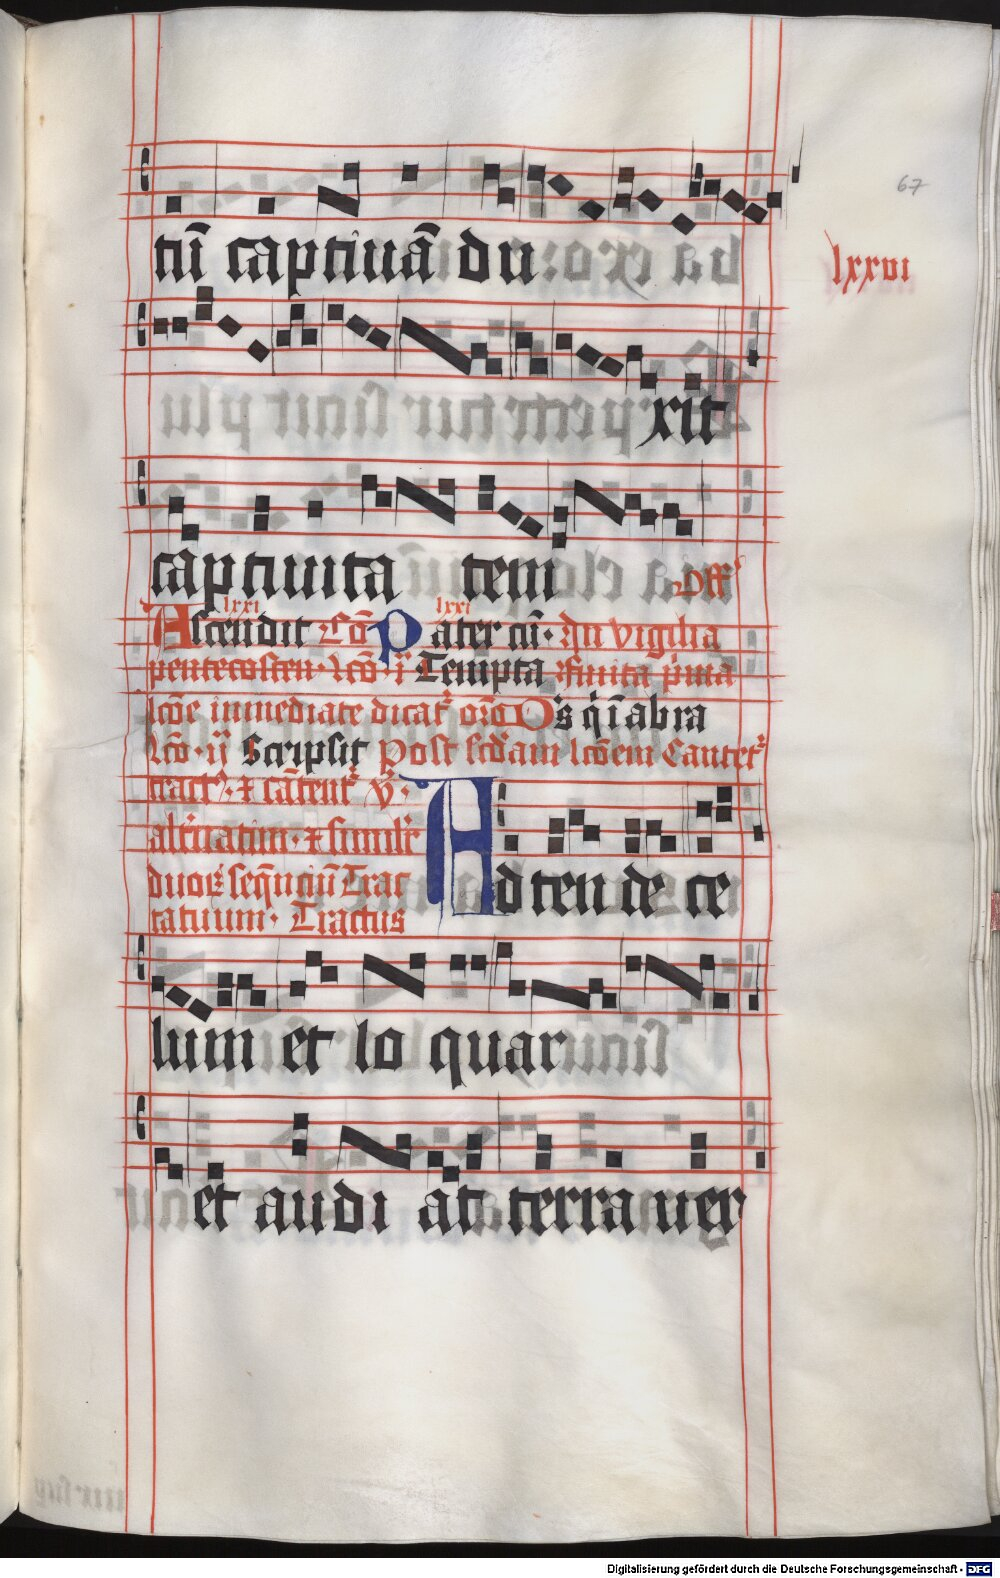 67
lxxvi
tiū captiuā du
xit
captiuita tem Off
lxxi lxxi
Ascendit Cō Pater cū. In vigilia
pentecosten. lcō. j. Tempta finita p̄ma
lcōe inmediate dicat᷑ orō Ds q̄ i abra
Lcō. ij Scripsit Post scd̄am lcōem Cantet᷑
tract᷑. ⁊ cātent᷑ v̄.
alt̄natim. ⁊ simil᷑
duoꝝ seq̄nciū Trac
tatuum. Tractus
Ad ten de ce
lum et lo quar
et audi at terra uer
Digitalisierung gefördert durch die Deutsche Forschungsgemeinschaft - DFG